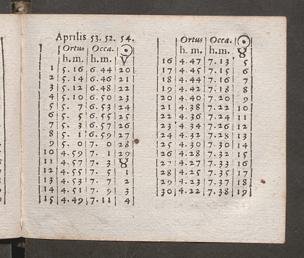 Aprilis 53. 52. 54.
Ortus Occa. ☉
h. m. h. m. ♈
1 5.16 6.44 20
2 5.14 6.46 21
3 5.12 6.48 22
4 5.10 6.50 23
5 5. 7 6.53 24
6 5. 5 6.55 25
7 5. 3 6.57 26
8 5. 1 6.59 27
9 5. 0 7. 0 28
10 4.59 7. 1 29
11 4.57 7. 3 ♉
12 4.55 7. 5 1
13 4.53 7. 7 2
14 4.51 7. 9 3
15 4.49 7.11 4
Ortus Occa. ☉
h. m. h. m. ♉
16 4.47 7.13 5
17 4.45 7.15 6
18 4.44 7.16 7
19 4.42 7.18 8
20 4.40 7.20 9
21 4.38 7.22 10
22 4.36 7.24 11
23 4.34 7.26 12
24 4.32 7.28 13
25 4.30 7.30 14
26 4.28 7.32 15
27 4.27 7.33 16
28 4.25 7.35 17
29 4.23 7.37 18
30 4.22 7.38 19